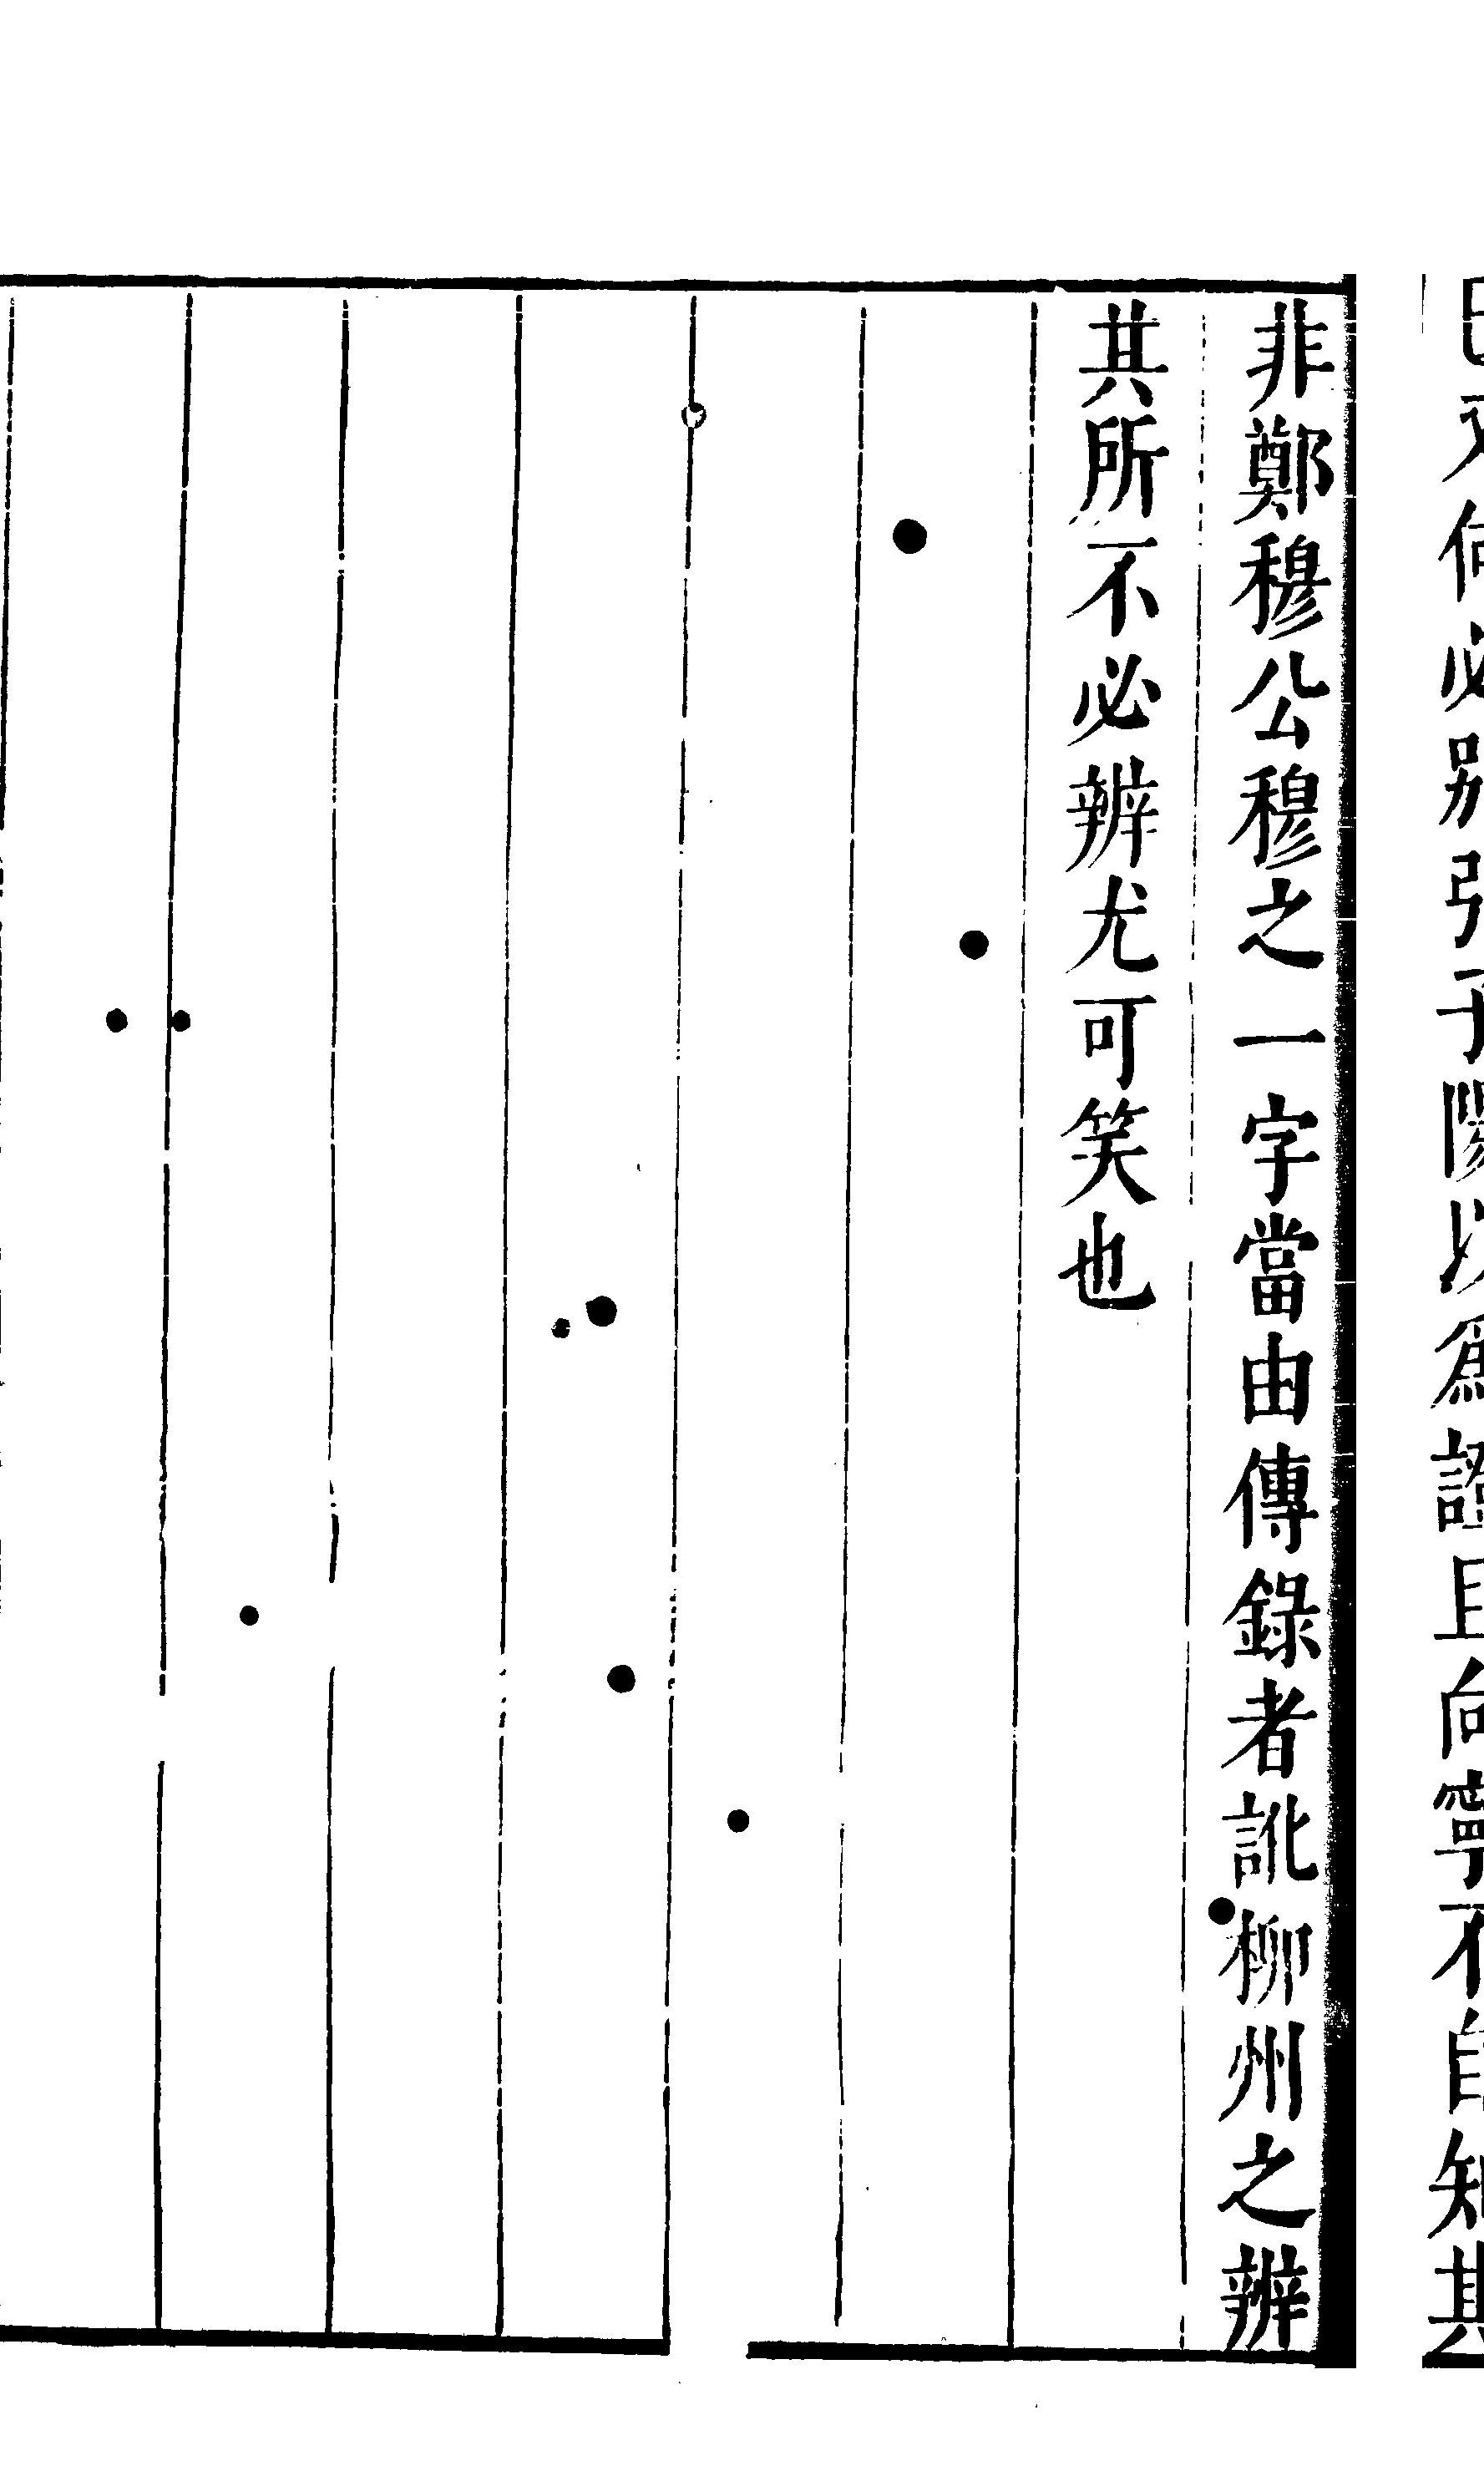 何必別引子陽以爲證且向寧不自知其
非鄭穆公穆之一字當由傳錄者訛柳州之辨
其所不必辨尤可笑也